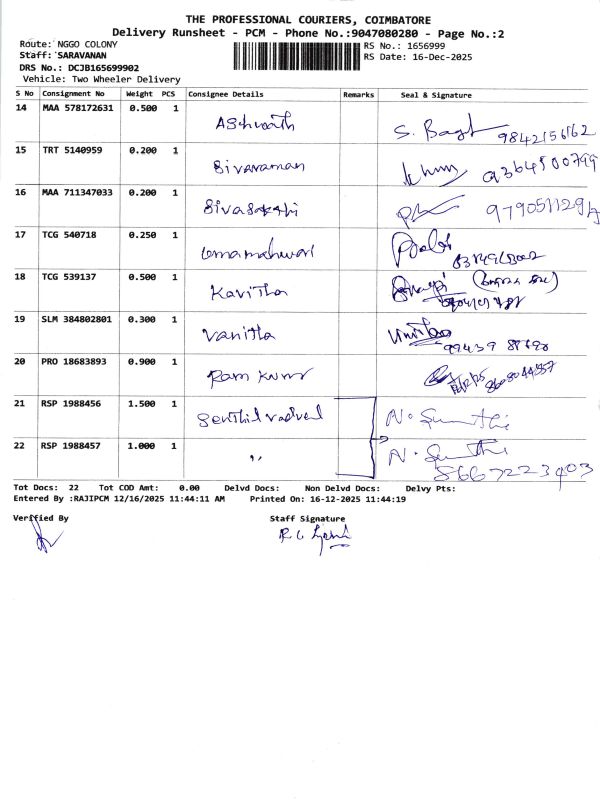 THE PROFESSIONAL COURIERS, COIMBATORE
Delivery Runsheet - PCM - Phone No.:9047080280 - Page No.:2
Route: NGGO COLONY
RS No.: 1656999
Staff: SARAVANAN
RS Date: 16-Dec-2025
DRS No.: DCJB165699902
Vehicle: Two Wheeler Delivery
S No Consignment No Weight PCS Consignee Details Remarks Seal & Signature
14 MAA 578172631 0.500 1 Ashwath 9842156162
15 TRT 5140959 0.200 1 Sivaraman 9364500799
16 MAA 711347033 0.200 1 Sivasakthi
17 TCG 540718 0.250 1 Umamaheswari
18 TCG 539137 0.500 1 Kavitha
19 SLM 384802801 0.300 1 Vanitha
20 PRO 18683893 0.900 1 Ram Kumar
21 RSP 1988456 1.500 1 Senthil vadivel N. Sumathi
22 RSP 1988457 1.000 1 " N. Sumathi
8667223903
Tot Docs: 22 Tot COD Amt: 0.00 Delvd Docs: Non Delvd Docs: Delvy Pts:
Entered By :RAJIPCM 12/16/2025 11:44:11 AM Printed On: 16-12-2025 11:44:19
Verified By Staff Signature